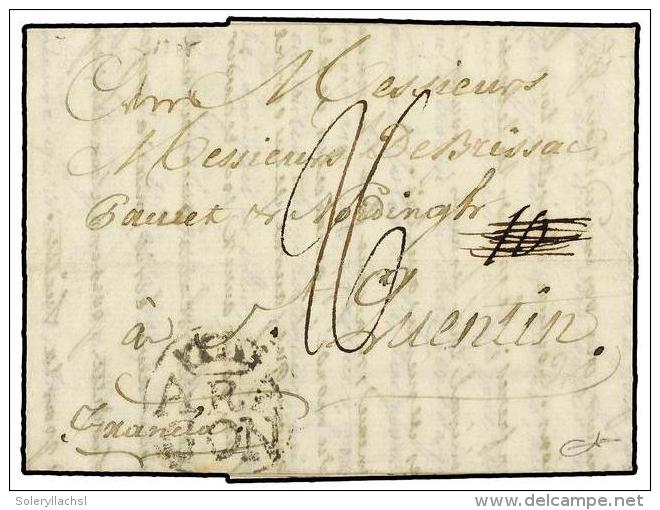 Messieurs
Messieurs De Brissac
Pauvet & Nordingh
10
à St Quentin.
ARA
GON
Francia
Soleryllachsl
www.delcampe.net